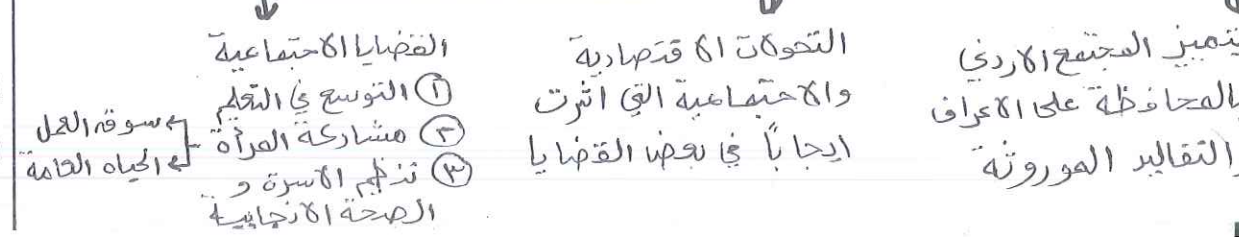 يتميز المجتمع الاردني
بالمحافظة على الاعراف
والتقاليد الموروثة
التحولات الاقتصادية
والاجتماعية التي اثرت
ايجاباً في بعض القضايا
القضايا الاجتماعية
① التوسع في التعلم
② مشاركة المرأة
سوق العمل
الحياه العامة
③ تنظيم الاسرة و
الصحة الانجابية